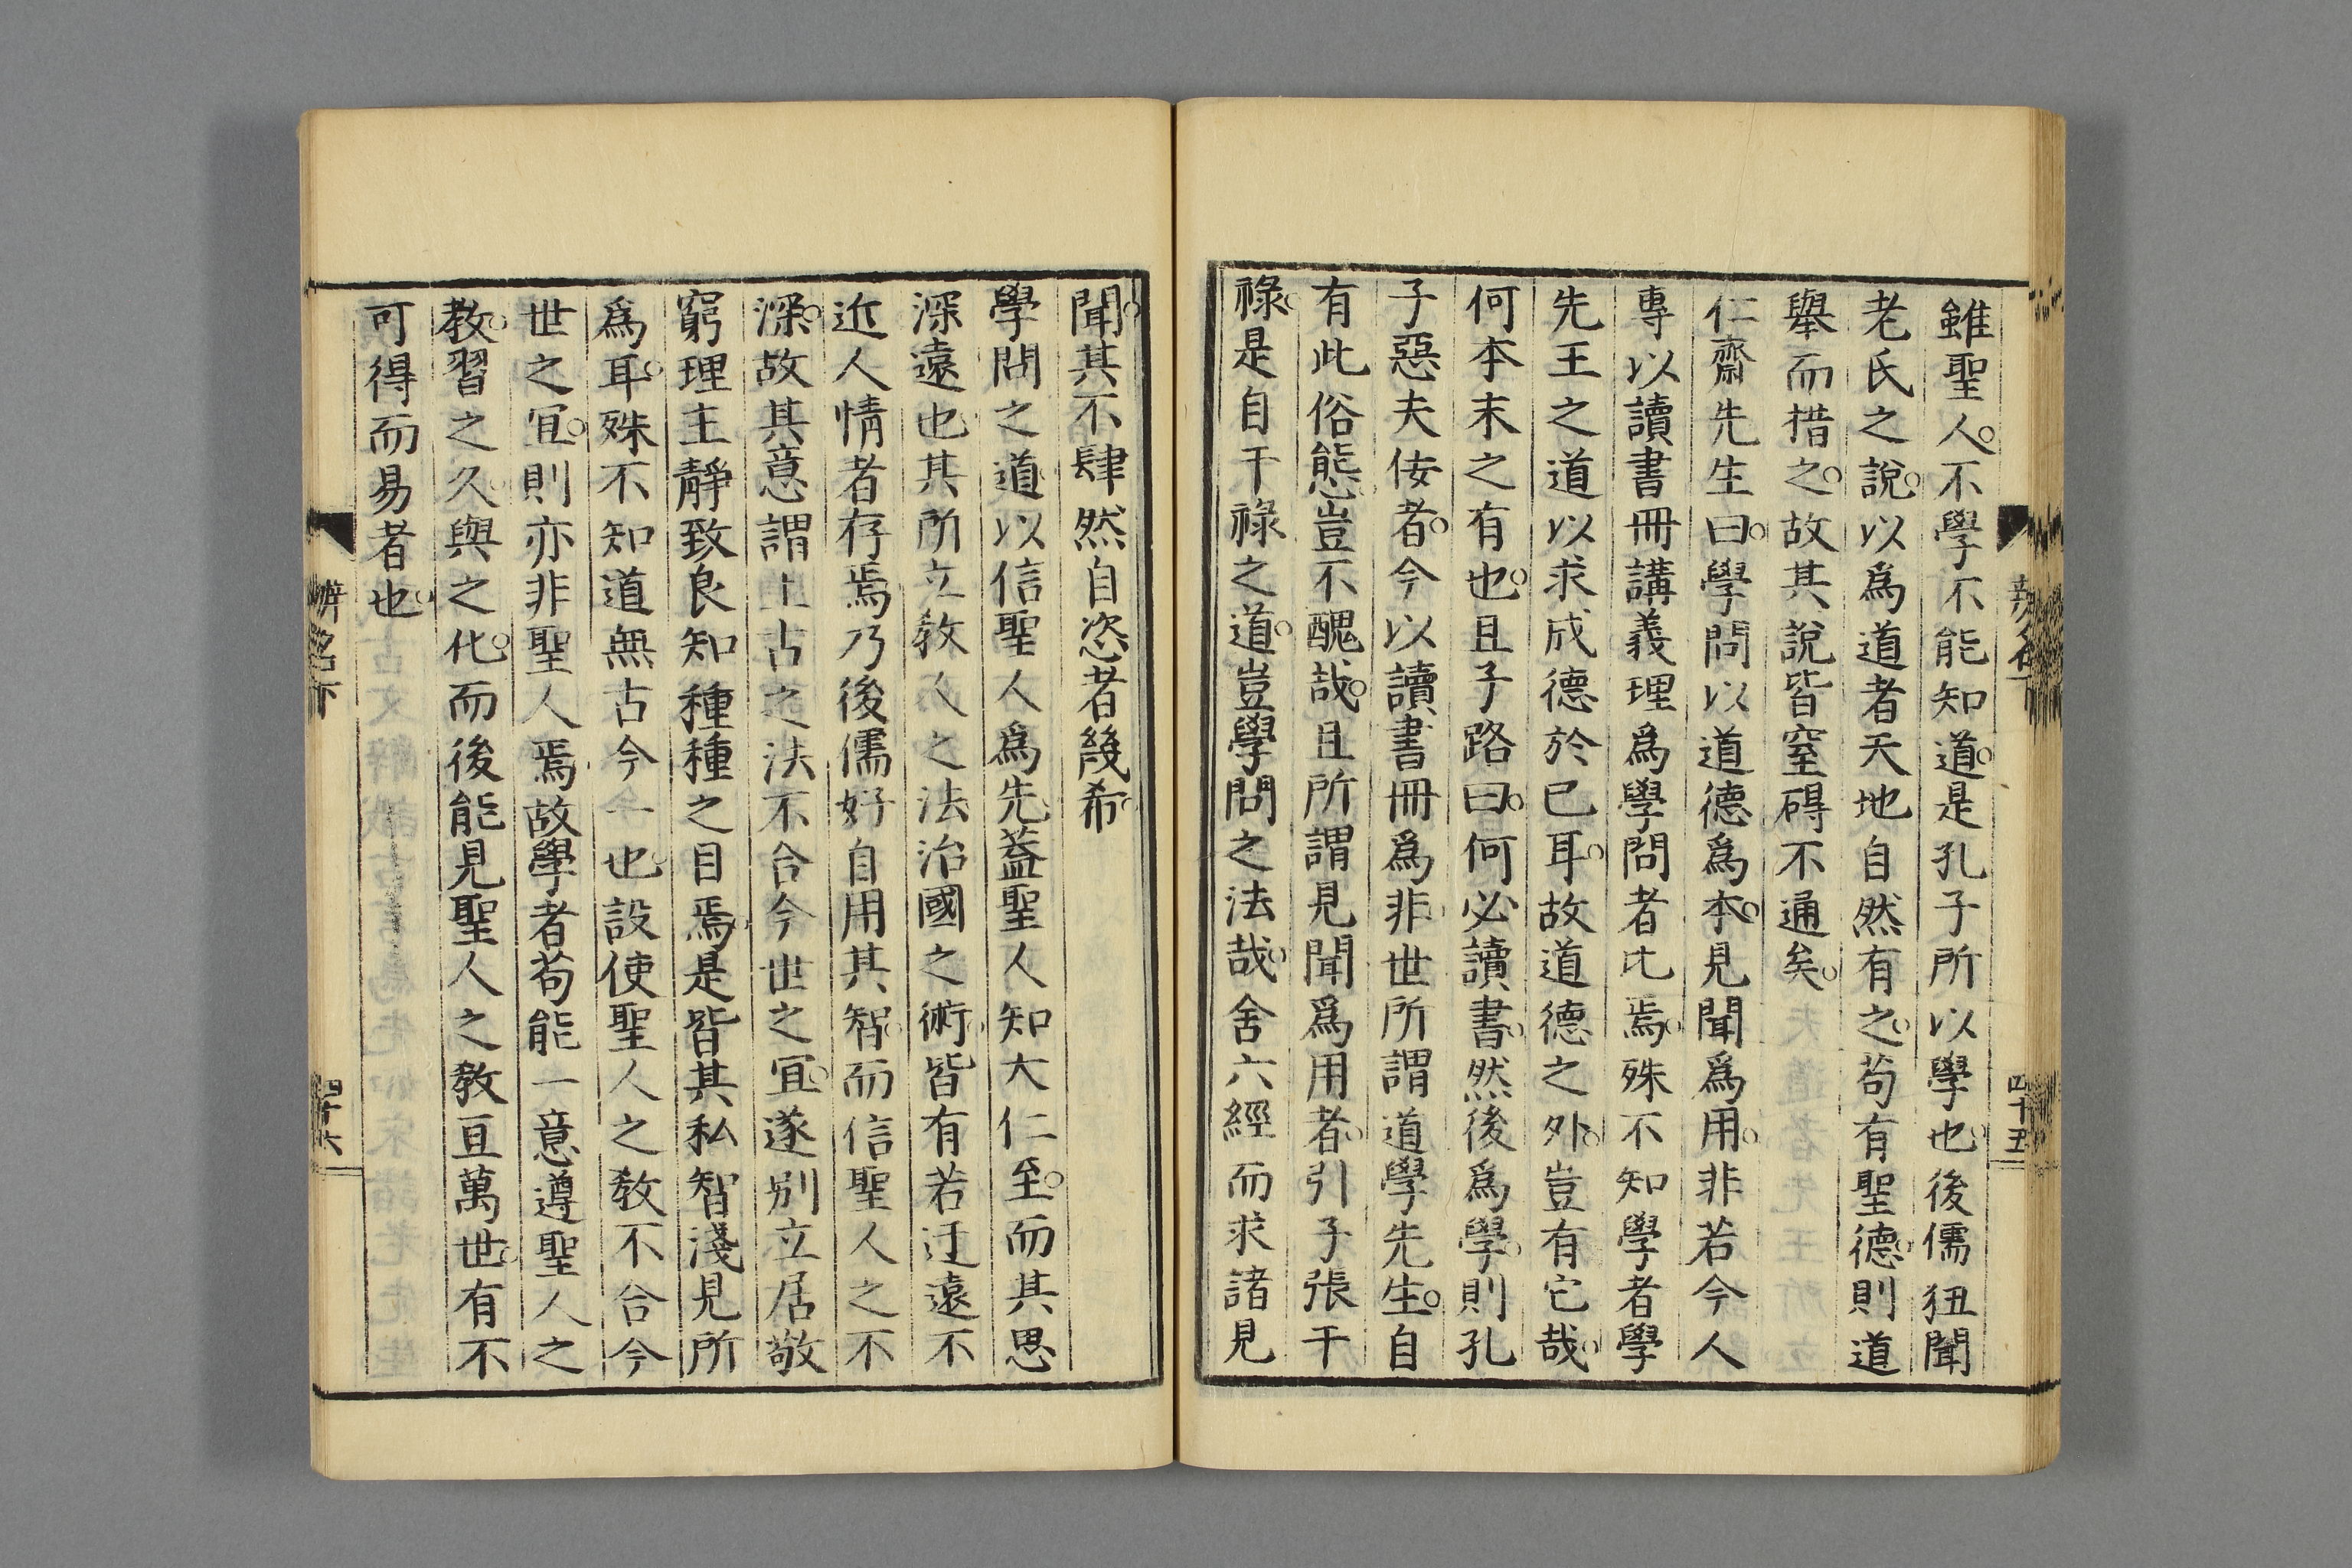 雖聖人。不學不能知道。是孔子所以學也。後儒狃聞
老氏之說。以爲道者天地自然有之。苟有聖德。則道
舉而措之。故其說皆窒碍不通矣。
仁齋先生曰。學問以道德爲本。見聞爲用。非若今人
專以讀書冊講義理爲學問者比焉。殊不知學者學
先王之道以求成德於已耳。故道德之外。豈有它哉。
何本末之有也。且子路曰。何必讀書。然後爲學。則孔
子惡夫佞者。今以讀書冊爲非。世所謂道學先生。自
有此俗態。豈不醜哉。且所謂見聞爲用者。引子張干
祿。是自干祿之道。豈學問之法哉。舍六經而求諸見
辨名下
四十五
聞。其不肆然自恣者幾希。
學問之道。以信聖人爲先。蓋聖人知大仁至。而其思
深遠也。其所立敎人之法。治國之術。皆有若迂遠不
近人情者存焉。乃後儒好自用其智。而信聖人之不
深。故其意謂上古之法不合今世之宜。遂別立居敬
窮理主靜致良知種種之目焉。是皆其私智淺見所
爲耳。殊不知道無古今一也。設使聖人之敎不合今
世之宜。則亦非聖人焉。故學者苟能一意遵聖人之
敎。習之久。與之化。而後能見聖人之敎亘萬世。有不
可得而易者也。
辨名下
四十六